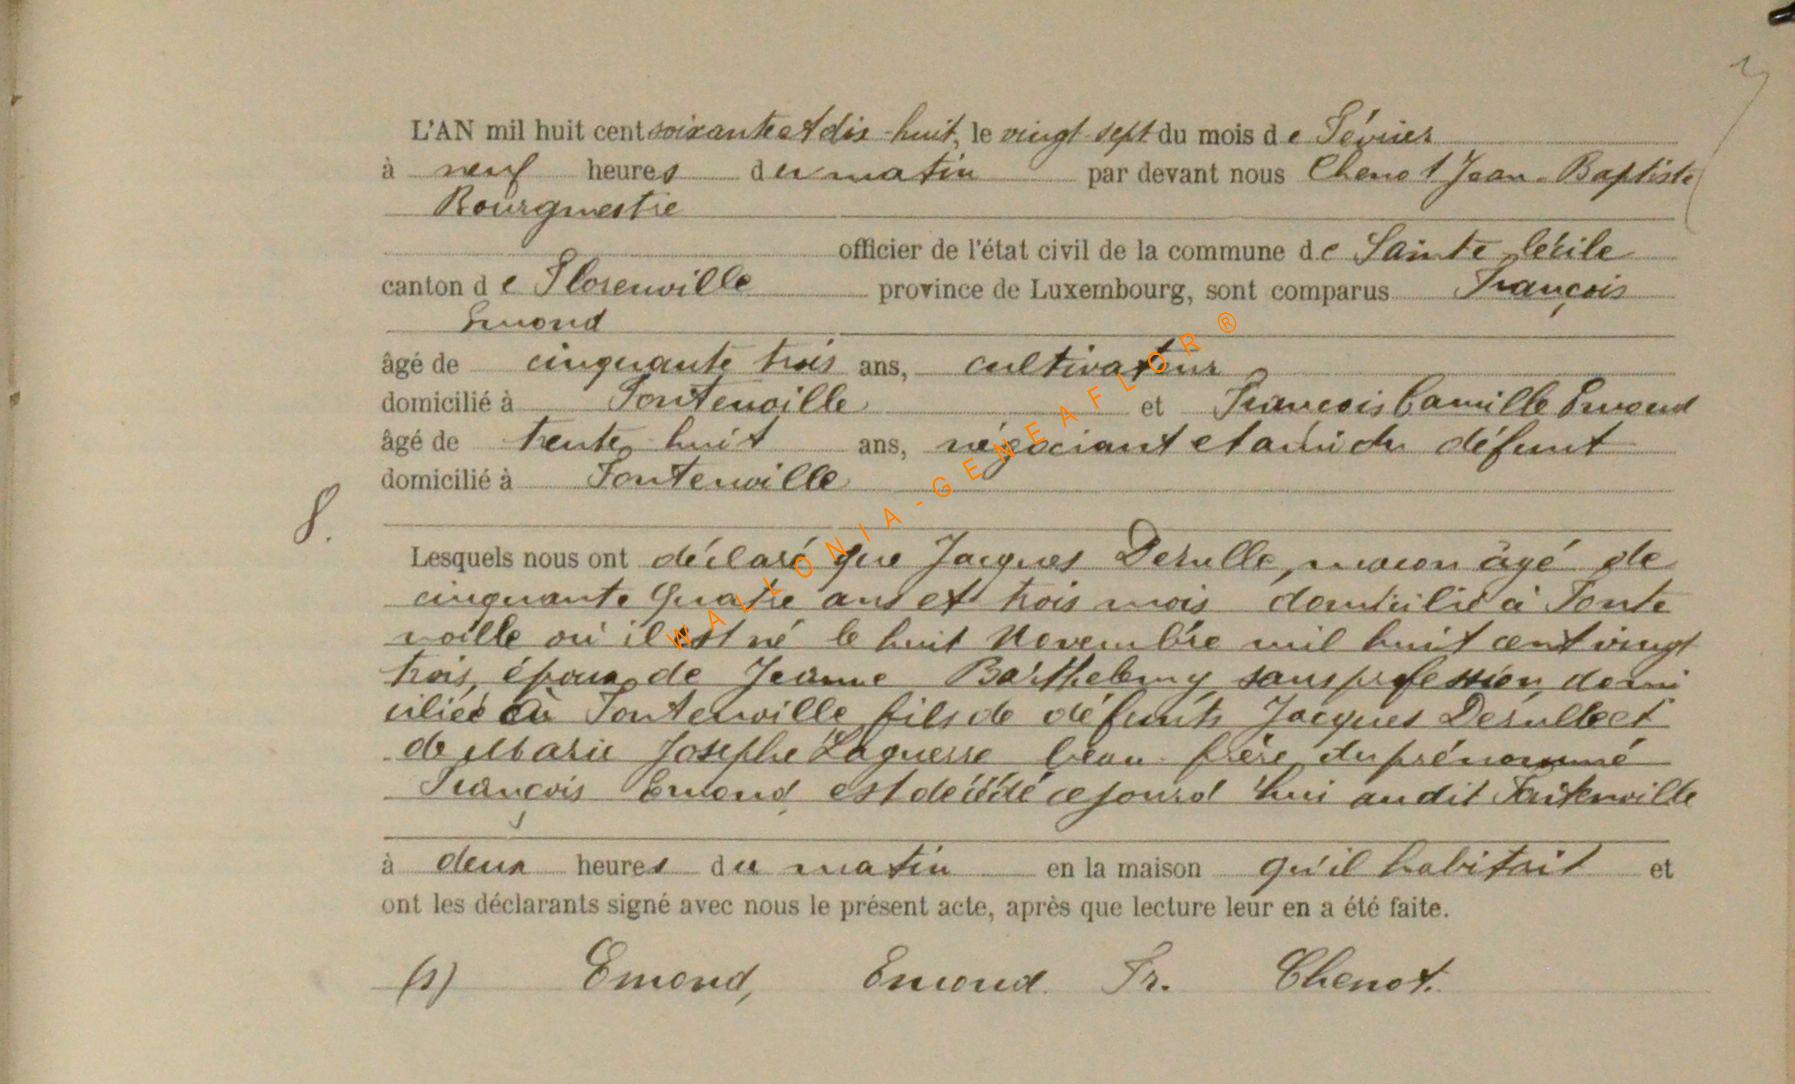 L'AN mil huit cent soixante et dix-huit, le vingt-sept du mois de Février
à neuf heures du matin par devant nous Chenot Jean-Baptiste
Bourgmestre
officier de l'état civil de la commune de Sainte-Cécile
canton de Florenville province de Luxembourg, sont comparus François
Emond
âgé de cinquante trois ans, cultivateur
domicilié à Fontenoille et François Camille Emond
âgé de trente huit ans, négociant et ami du défunt
domicilié à Fontenoille
8.
Lesquels nous ont déclaré que Jacques Derulle, maçon âgé de
cinquante quatre ans et trois mois domicilié à Fonte
noille où il est né le huit Novembre mil huit cent vingt
trois, époux de Jeanne Barthelemy sans profession, domi
ciliée à Fontenoille fils de défunts Jacques Derulle et
de Marie Josephe Laguerre beau-frère du prénommé
François Emond, est décédé ce jourd'hui audit Fontenoille
à deux heures du matin en la maison qu'il habitait et
ont les déclarants signé avec nous le présent acte, après que lecture leur en a été faite.
(s) Emond, Emond Fr. Chenot.
WALLONIA-GENEAFLOR®